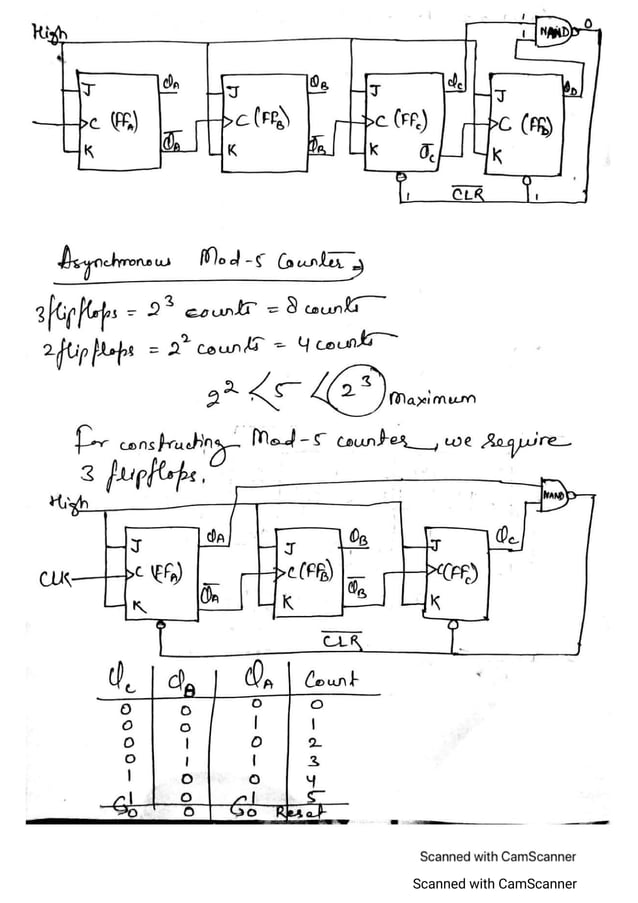 High
NAND
0
1
1
J
C (FFA)
K
QA
Q̅A
J
C (FFB)
K
QB
Q̅B
J
C (FFC)
K
QC
Q̅C
J
C (FFD)
K
QD
1
C̅L̅R̅
1
Asynchronous Mod-5 Counter
3 flipflops = 2³ counts = 8 counts
2 flipflops = 2² counts = 4 counts
2² < 5 < 2³ Maximum
For constructing Mod-5 counter, we require
3 flipflops.
High
NAND
CLK
J
C (FFA)
K
QA
Q̅A
J
C (FFB)
K
QB
Q̅B
J
C (FFC)
K
QC
C̅L̅R̅
QC QB QA Count
0 0 0 0
0 0 1 1
0 1 0 2
0 1 1 3
1 0 0 4
1 0 1 5
0 0 0 Reset
Scanned with CamScanner
Scanned with CamScanner